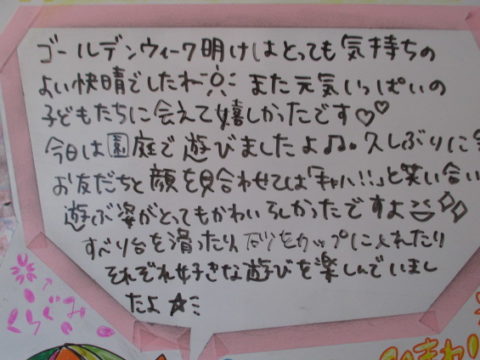 ゴールデンウィーク明けはとっても気持ちの
よい快晴でしたね☀ また元気いっぱいの
子どもたちに会えて嬉しかったです♡♡
今日は園庭で遊びましたよ♫。久しぶりに
お友だちと顔を見合わせては「キャハ!!」と笑い合い
遊ぶ姿がとってもかわいらしかったですよ
すべり台を滑ったり、砂をカップに入れたり
それぞれ好きな遊びを楽しんでいまし
たよ☆
さくらぐみ